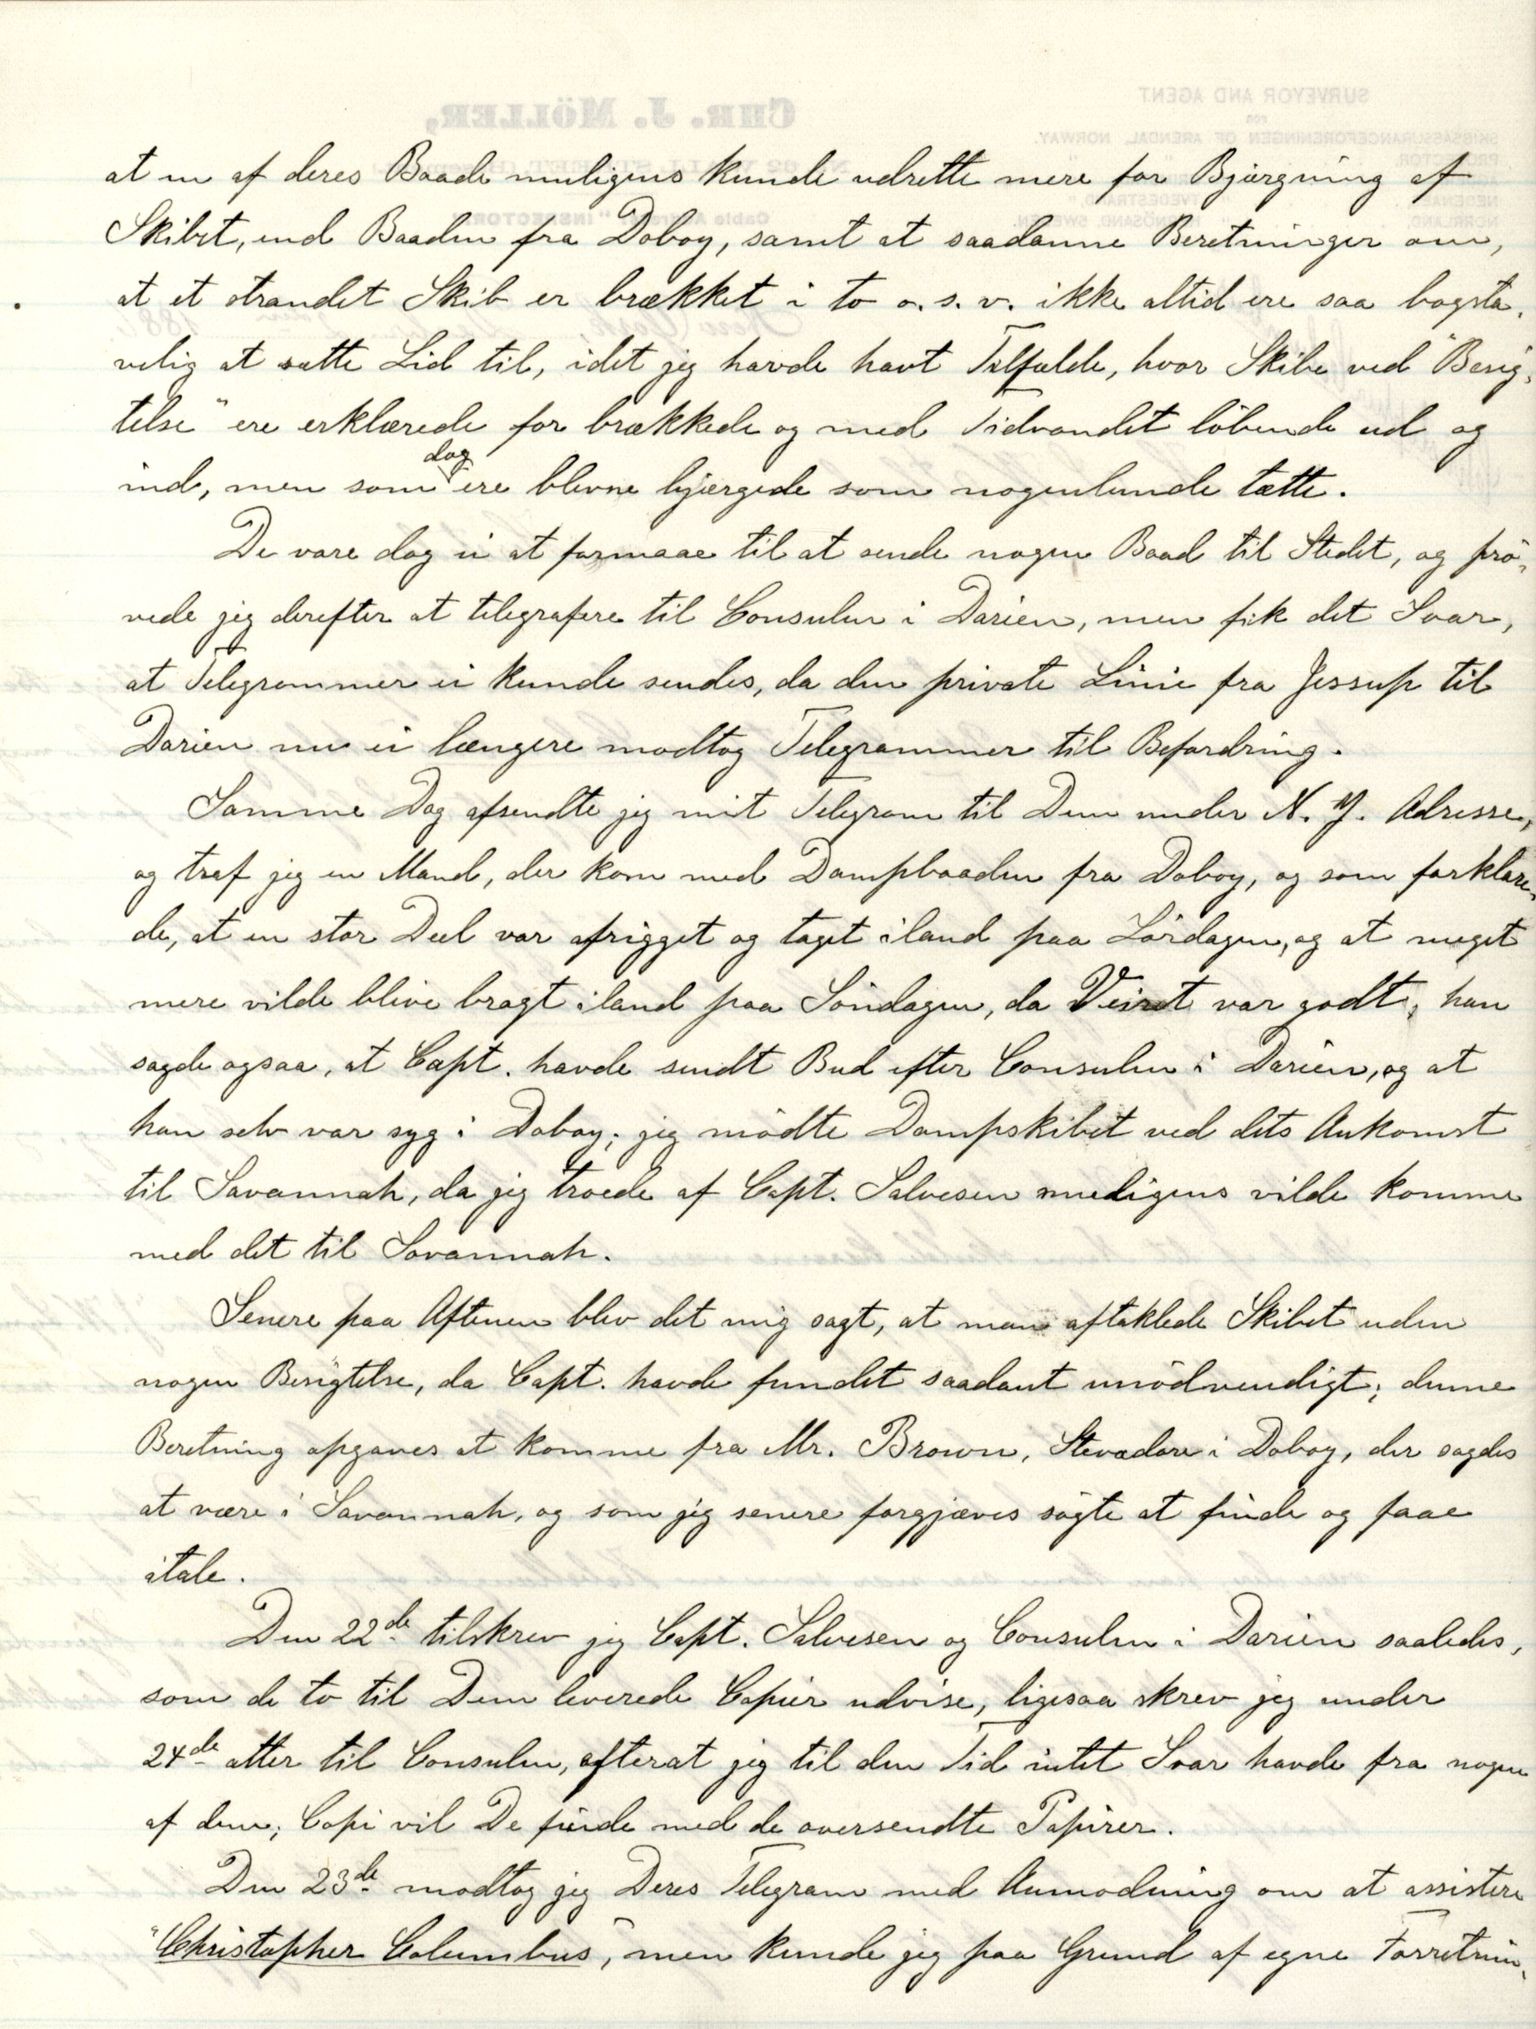 at en af deres Baade muligens kunde udrette mere for Bjærgning af
Skibet, end Baaden fra Doboy, samt at saadanne Beretninger om,
at et strandet Skib er brækket i to o. s. v. ikke altid ere saa bogsta-
velig at sætte Lid til, idet jeg havde havt Tilfælde, hvor Skibe ved "Besig-
telse" ere erklærede for brækkede og med Tidvandet löbende ud og
ind, men som dog ere blevne bjærgede som nogenlunde tætte.
De vare dog ei at formaae til at sende nogen Baad til Stedet, og prö-
vede jeg derefter at telegrafere til Consulen i Darien, men fik det Svar,
at Telegrammer ei kunde sendes, da den private Linie fra Jessup til
Darien nu ei længere modtog Telegrammer til Befordring.
Samme Dag afsendte jeg mit Telegram til Dem under N. Y. Adresse,
og traf jeg en Mand, der kom med Dampbaaden fra Doboy, og som forklare-
de, at en stor Deel var afrigget og taget iland paa Lördagen, og at meget
mere vilde blive bragt iland paa Söndagen, da Veiret var godt; han
sagde ogsaa, at Capt. havde sendt Bud efter Consulen i Darien, og at
han selv var syg i Doboy; jeg mödte Dampskibet ved dets Ankomst
til Savannah, da jeg troede af Capt. Salvesen muligens vilde komme
med det til Savannah.
Senere paa Aftenen blev det mig sagt, at man aftaklede Skibet uden
nogen Besigtelse, da Capt. havde fundet saadant unödvendigt; denne
Beretning opgaves at komme fra Mr. Brown, Stevadore i Doboy, der sagdes
at være i Savannah, og som jeg senere forgjæves sögte at finde og faae
itale.
Den 22de tilskrev jeg Capt. Salvesen og Consulen i Darien saaledes,
som de to til Dem leverede Copier udvise, ligesaa skrev jeg under
24de atter til Consulen, efterat jeg til den Tid intet Svar havde fra nogen
af dem; Copi vil De finde med de oversendte Papirer.
Den 23de modtog jeg Deres Telegram med Anmodning om at assistere
"Christopher Columbus", men kunde jeg paa Grund af egne Forretnin-